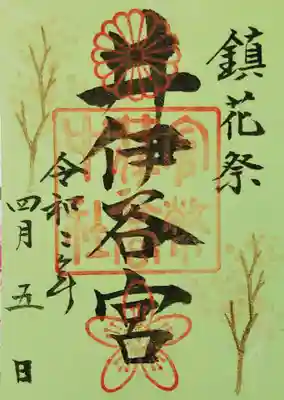 鎮花祭
井伊谷宮
令和三年
四月五日